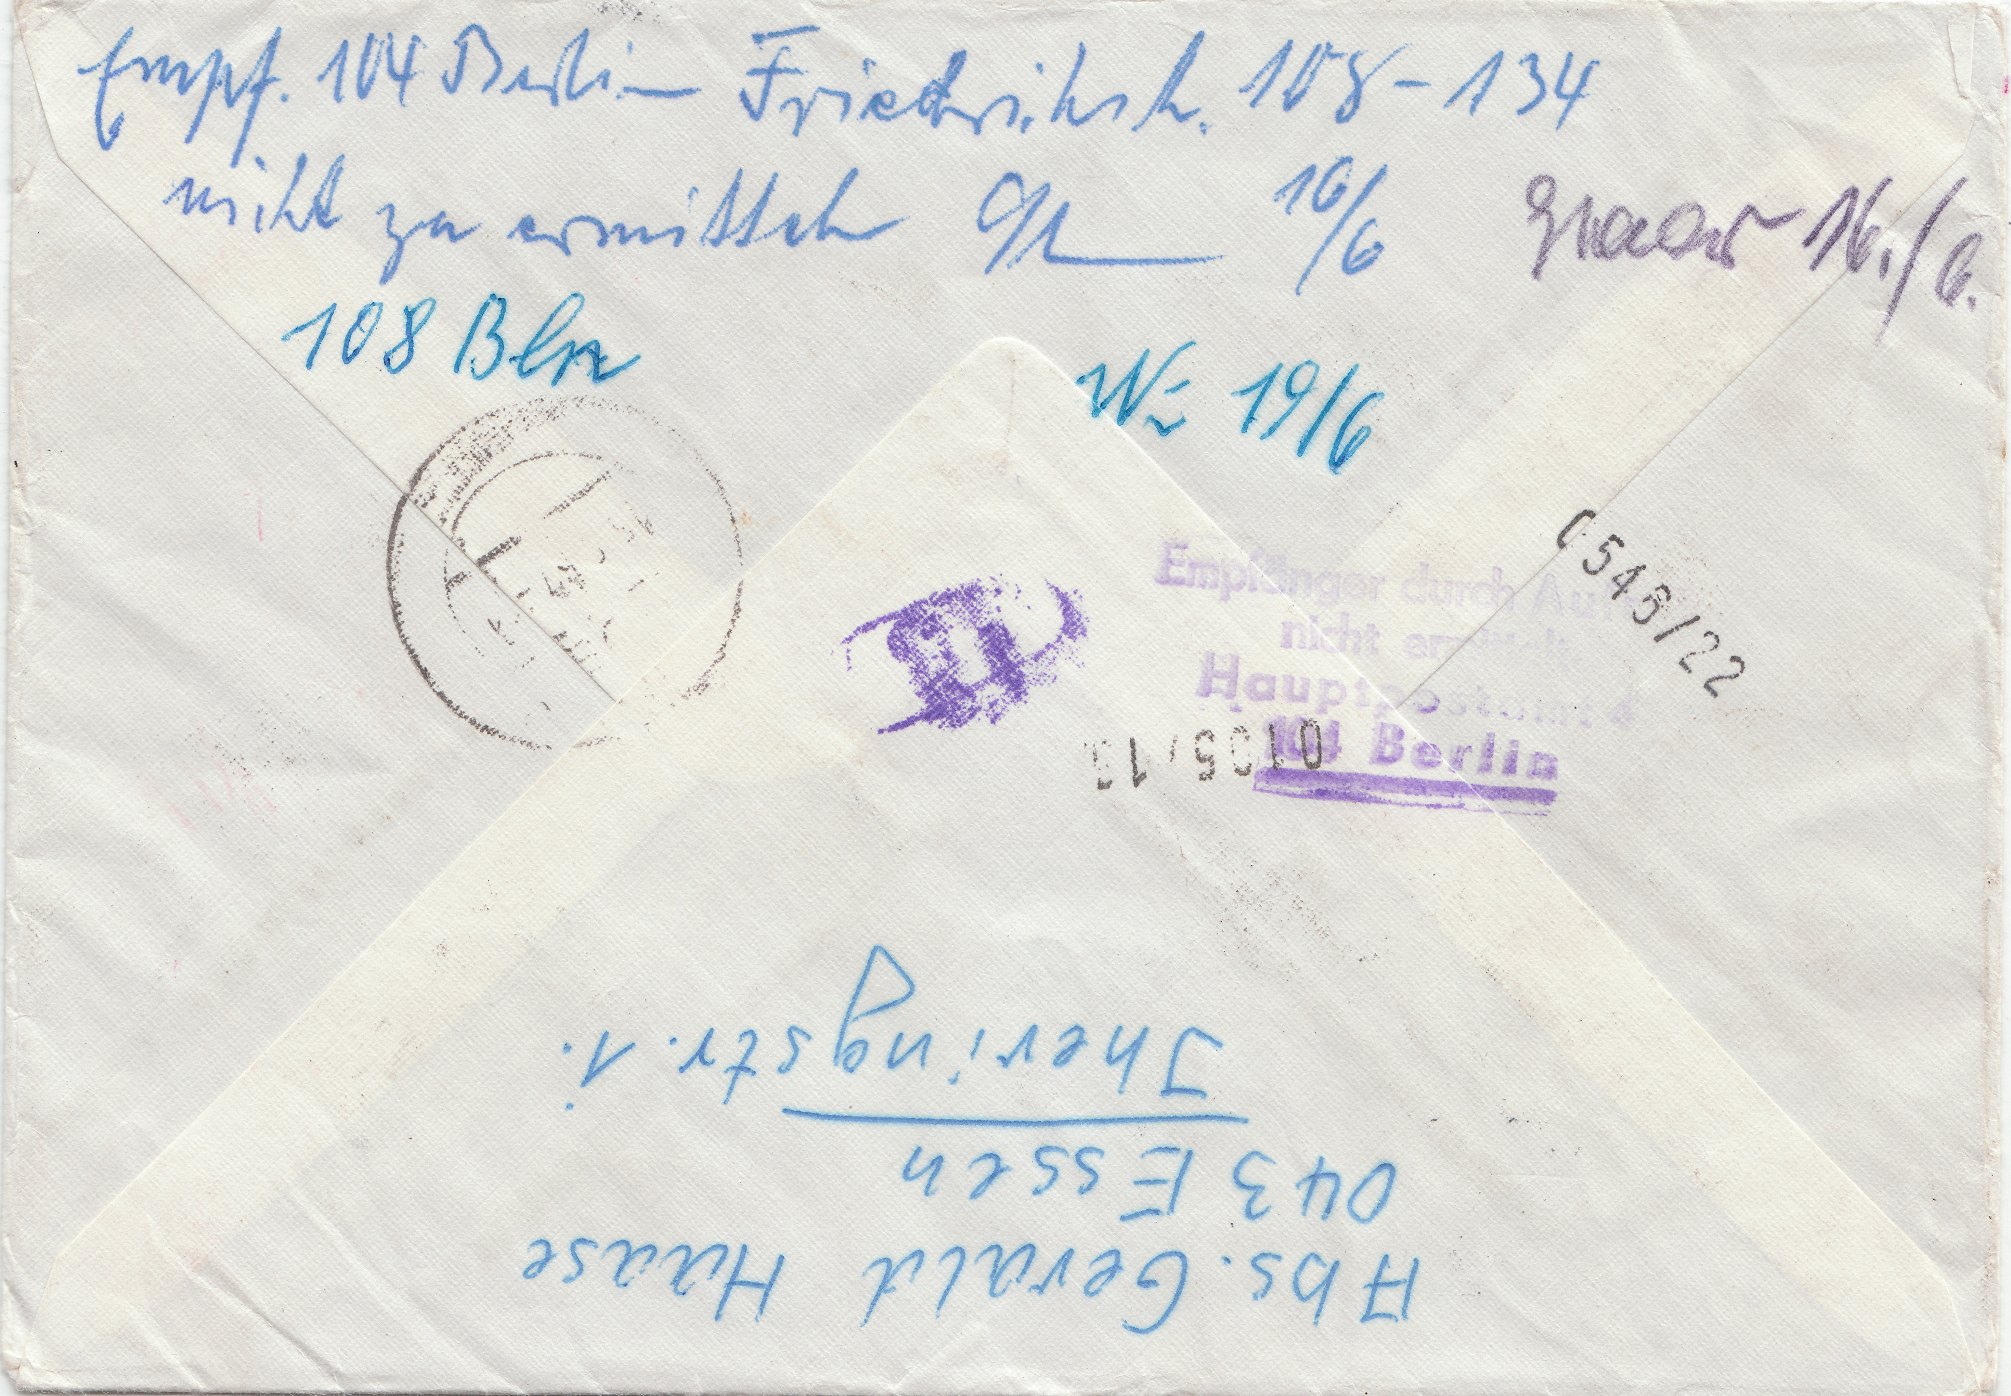 Empf. 104 Berlin Friedrichstr. 108-134
nicht zu ermitteln 16/6
16./6.
108 Bln
19/6
Empfänger durch
nicht ermittelt
Hauptpostamt 4
104 Berlin
0546/22
Abs. Gerald Haase
043 Essen
Jheringstr. 1.